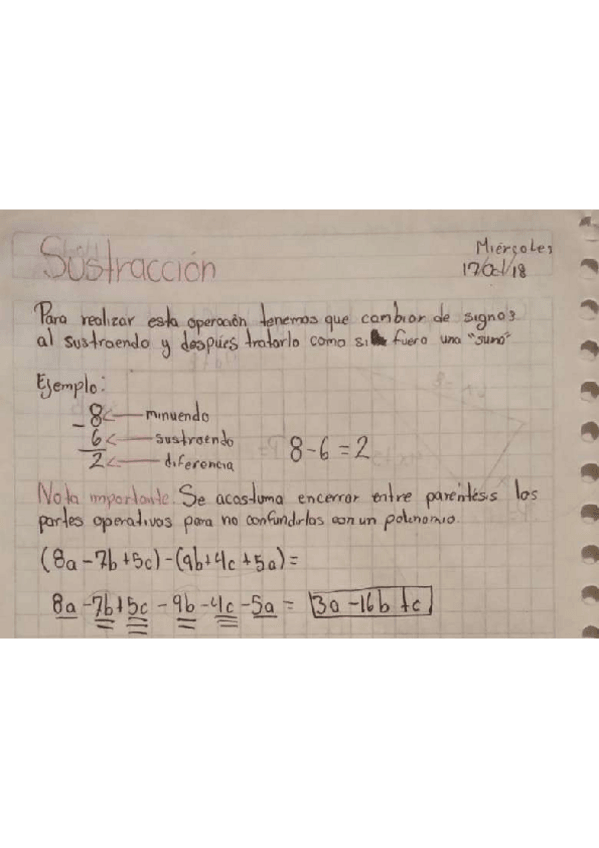 Sustracción
Miércoles
17/Oct/18
Para realizar esta operación tenemos que cambiar de signos
al sustraendo y despúes tratarlo como si fuera una "suma"
Ejemplo:
- 8 ← minuendo
6 ← sustraendo
2 ← diferencia
8-6=2
Nota importante. Se acostuma encerrar entre paréntesis las
partes operativas para no confundirlas con un polinomio.
(8a-7b+5c)-(9b+4c+5a)=
8a-7b+5c-9b-4c-5a= 3a-16b+c